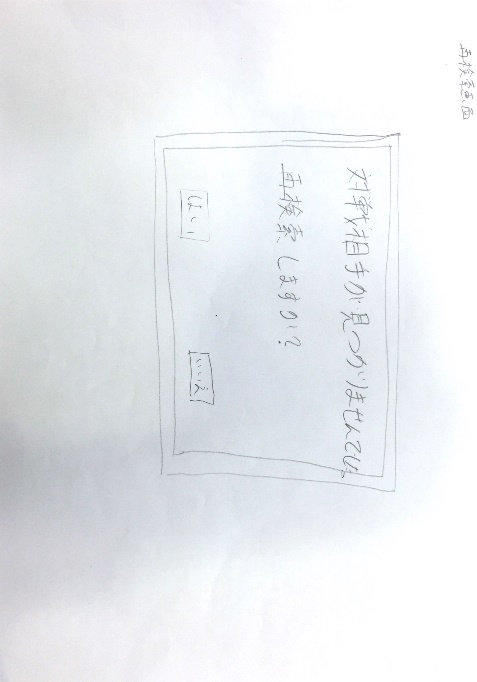 再検索画面
対戦相手が見つかりませんでした
再検索しますか?
はい
いいえ